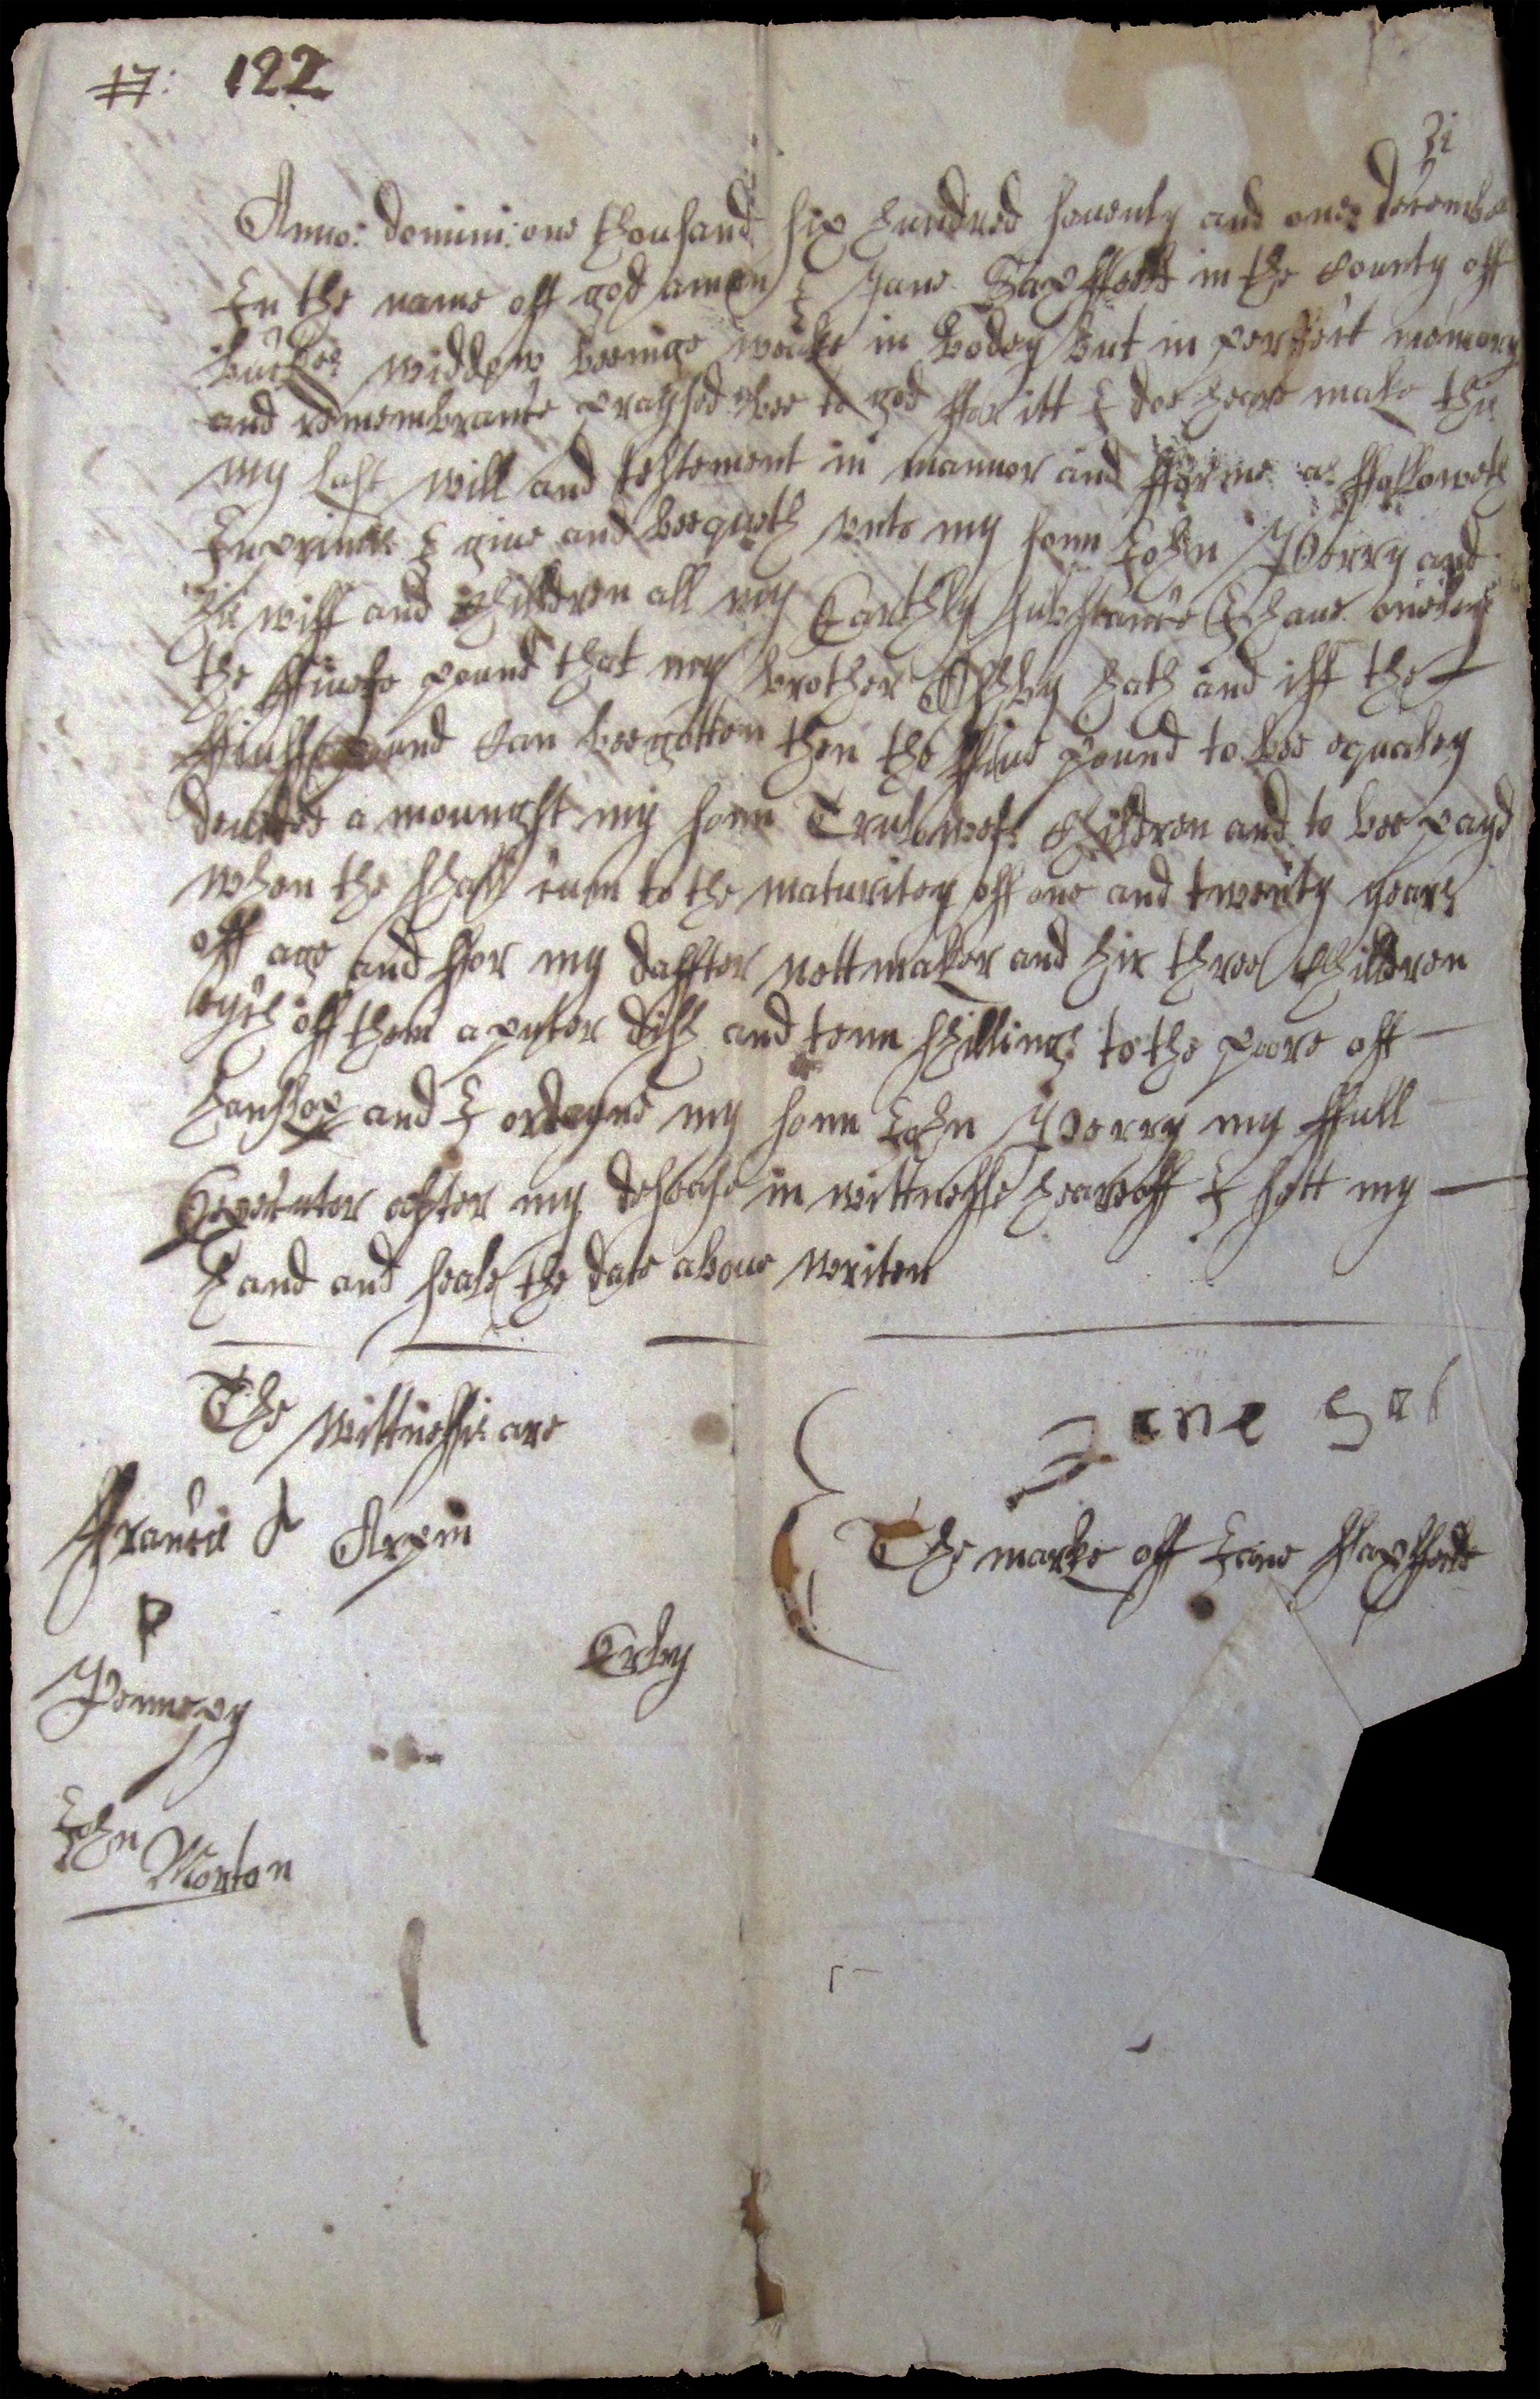 17: 122
31
Anno: domini: one thousand six hundred seuenty and one: december
In the name off god amen I Jane Saxffeeld in the County off
buckes widdow beeinge weake in bodey but in perffect memory
and remembrance praysed bee to god ffor itt I doe heare make this
my last will and testement in mannor and fforme as ffolloweth
Inprimis I giue and beequeth vnto my sonn Iohn Perry and
his wiff and Children all my Earthly substance I haue onely
the ffiuefe pound that my brother hath and iff the
ffiuff pound can bee gotten then the ffiue pound to bee equaley
deuided a mounghst my sonn Trulowes Children and to bee payd
when the shall cum to the maturitey off one and twenty years
off age and ffor my daffter nettmaker and hir three Children
eych off them a puter dish and tenn shillings to the poore off
hanslop and I ordayne my sonn Iohn Perry my ffull
Execūter after my desease in wittnesse heareoff I sett my
hand and seale the date aboue writen
The wittnessis are
Jane sa
Francis Arpin
The marke off Iane saxffeeld
P
Erby
Pennery
Iohn
Morton